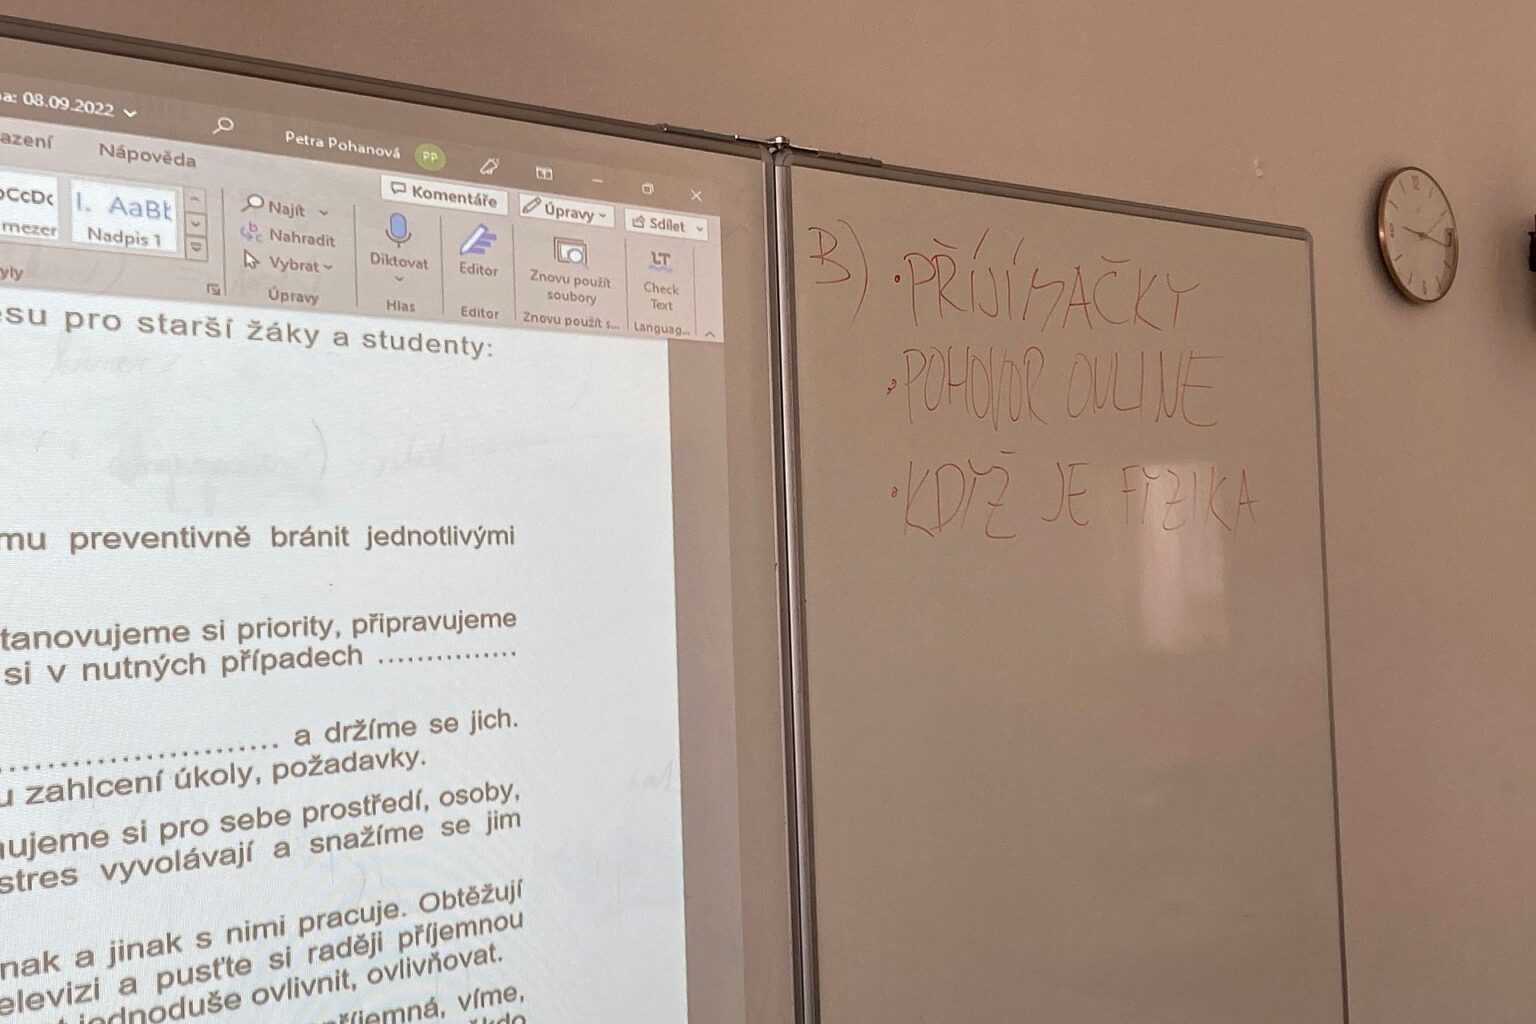 a: 08.09.2022
Petra Pohanová PP
azení Nápověda
Komentáře Úpravy Sdílet
CcDc AaBb
mezer Nadpis 1
Najít
Nahradit
Vybrat
Úpravy
Diktovat
Hlas
Editor
Editor
Znovu použít
soubory
Znovu použít s...
LT
Check
Text
Languag...
yly
esu pro starší žáky a studenty:
mu preventivně bránit jednotlivými
tanovujeme si priority, připravujeme
si v nutných případech ...............
.............................. a držíme se jich.
u zahlcení úkoly, požadavky.
ujeme si pro sebe prostředí, osoby,
stres vyvolávají a snažíme se jim
nak a jinak s nimi pracuje. Obtěžují
elevizi a pusťte si raději příjemnou
jednoduše ovlivnit, ovlivňovat.
příjemná, víme,
B) • PŘIJÍMAČKY
• POHOVOR ONLINE
• KDYŽ JE FYZIKA